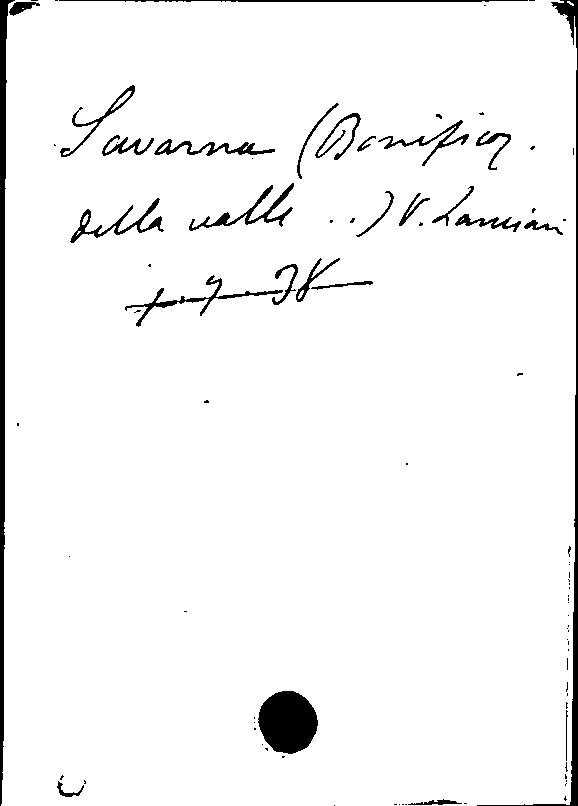 Savarna (Bonificaz.
della valle ..) V. Lanciani
1.7.38